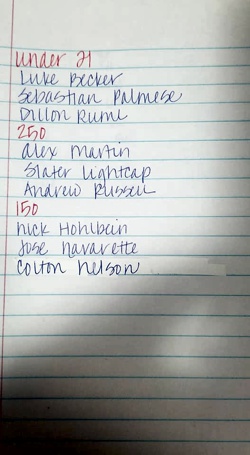 under 21
Luke Becker
Sebastian Palmese
Dillon Rume
250
Alex Martin
Slater Lightcap
Andrew Russell
150
Nick Hohlbein
Jose Navarette
Colton Nelson